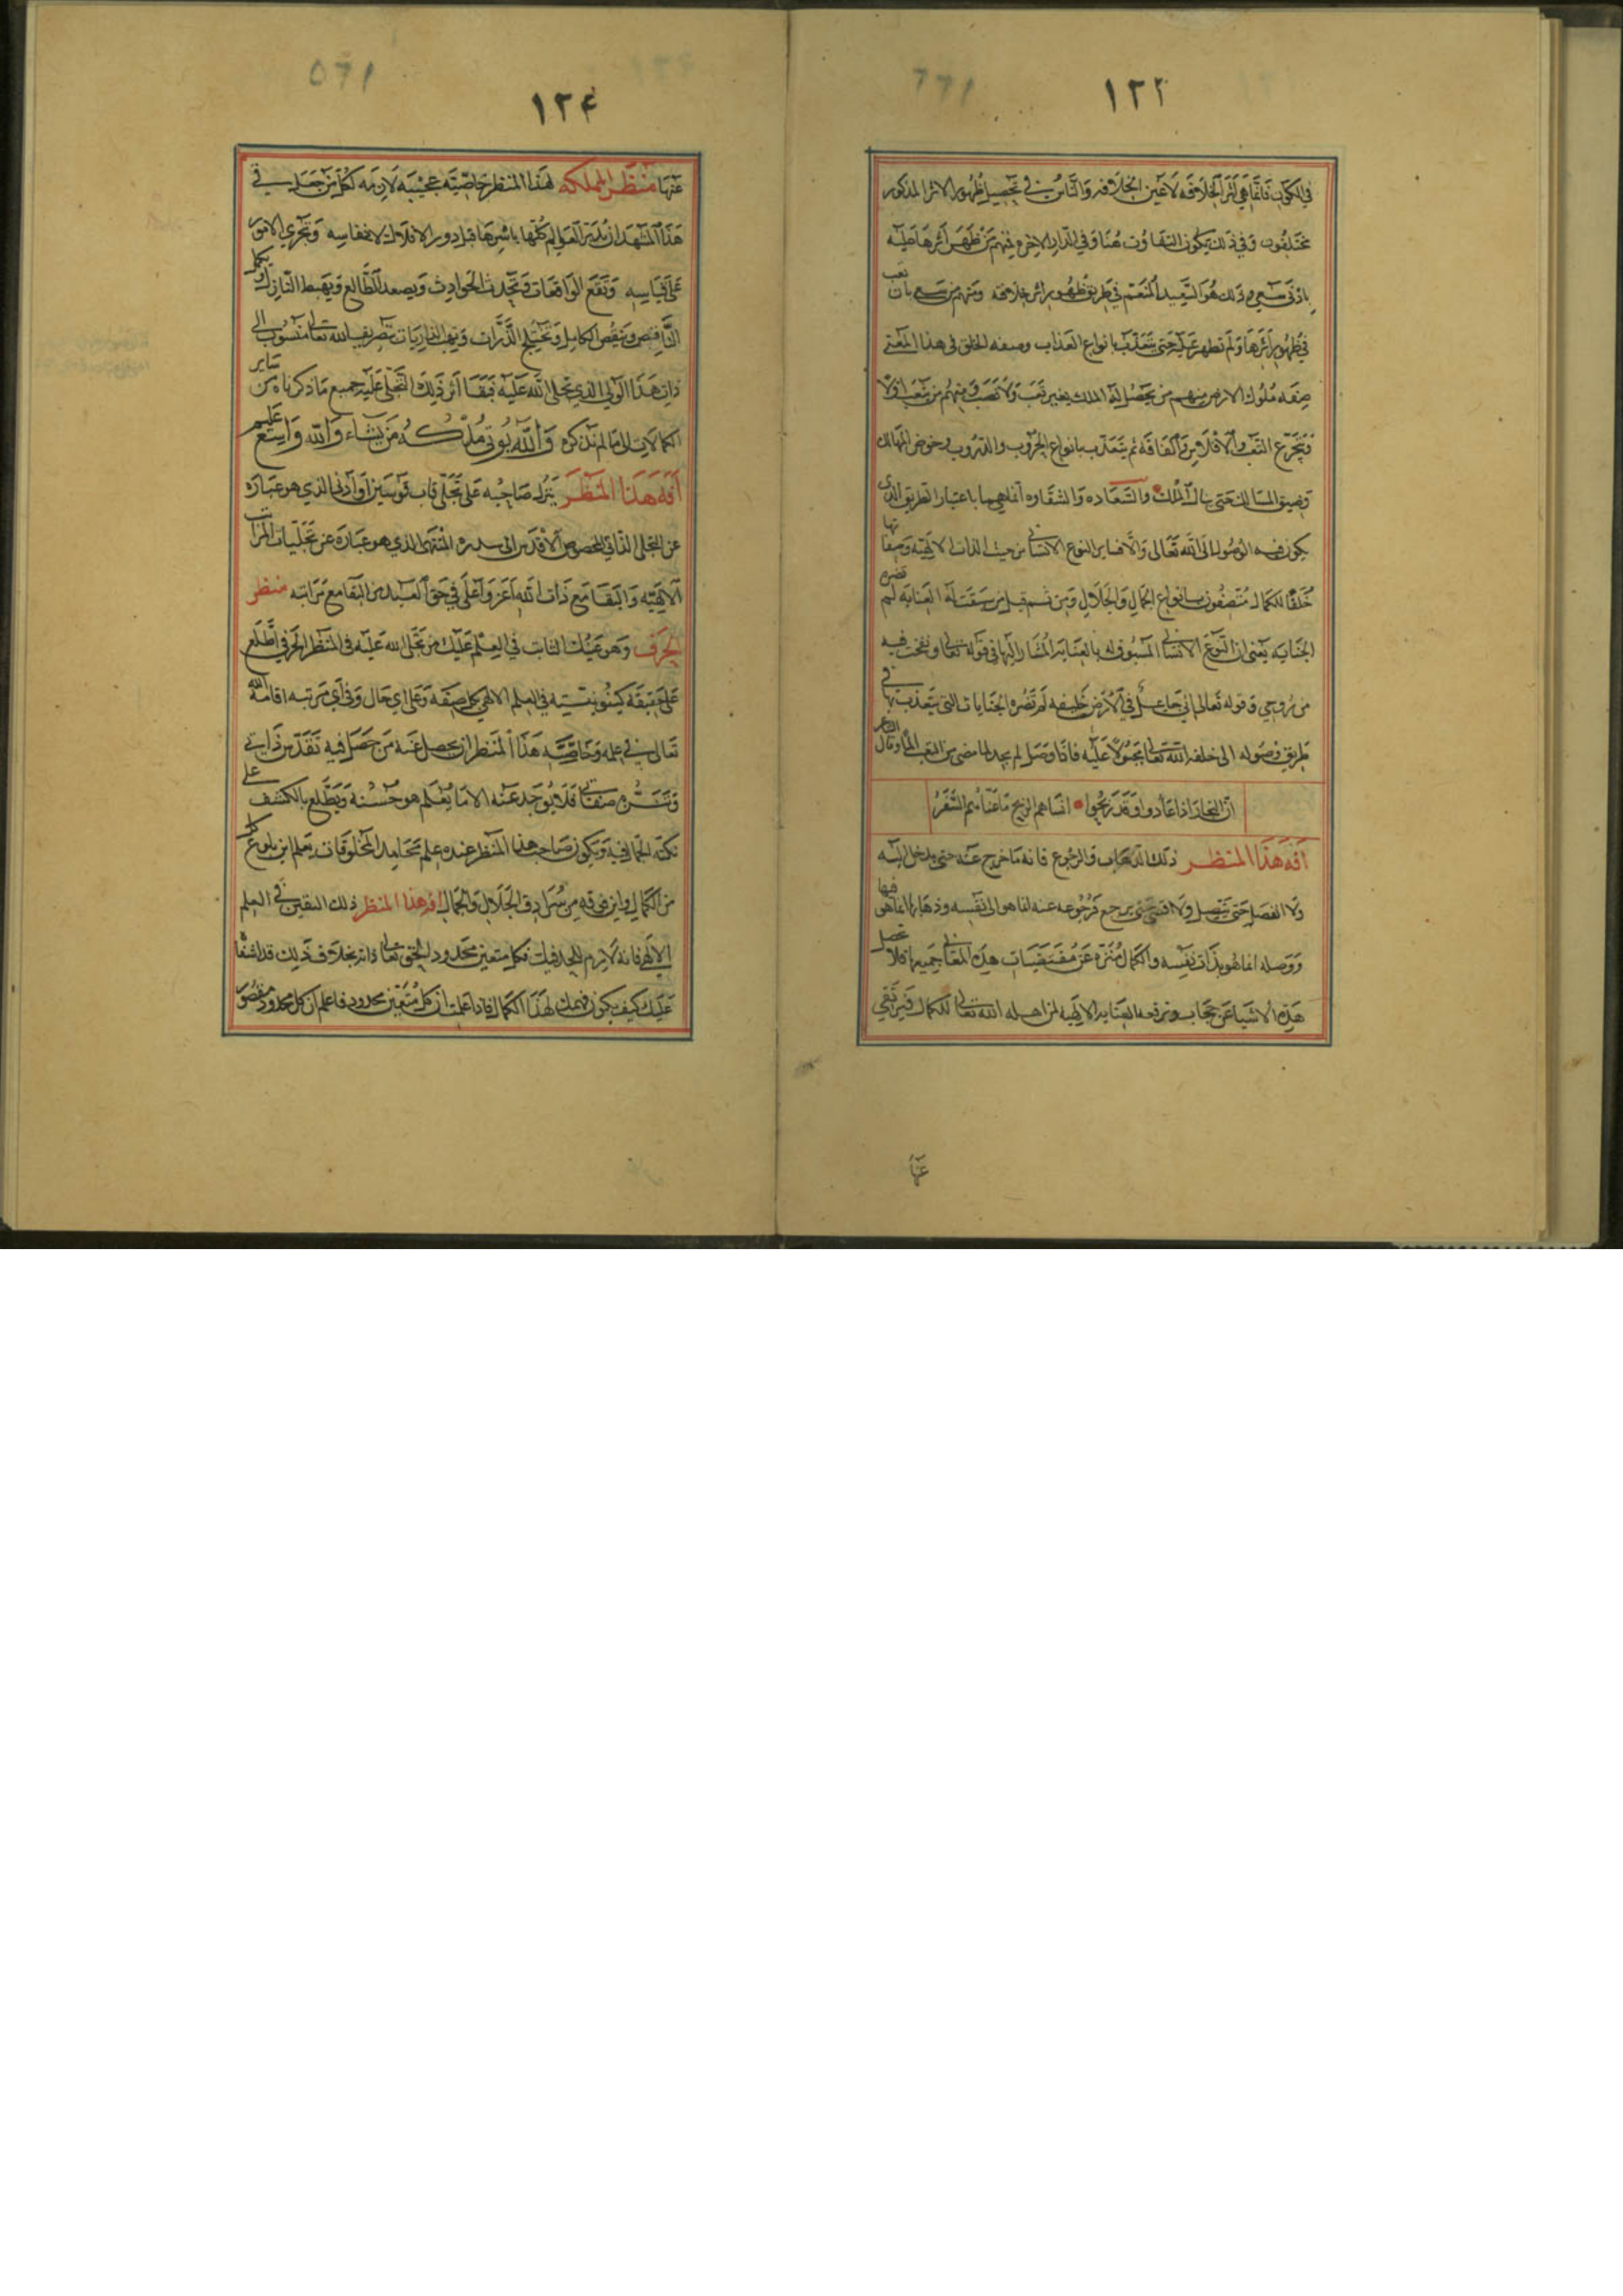 ١٢٣
في الكون فانما هي اثر الخلافه لا عين الخلافه والناس في تحصيل ظهور الاثر المذكور
مختلفون وفي ذلك يكون التفاوت هنا وفي الدار الاخره فمنهم من ظهر اثرها عليه
بادنى سعي وذلك هو السعيد المنعم في طريق ظهور اثر خلافته ومنهم من سعى بان تعب
في ظهور اثرها ولم تظهر عليه حتى يتعذب بانواع العذاب وصفه الخلق في هذا المعنى
صفه ملوك الارض منهم من يحصل له الملك بغير تعب ولا نصب ومنهم من يتعب اولا
ويتجرع التعب والافلاس والفاقه ثم يتعذب بانواع الحروب والدروب وخوض المهالك
وضيق المسالك حتى ينال الملك والسعاده والشقاوه انما هما باعتبار الطريق الذي
يكون فيه الوصول الى الله تعالى والا فساير النوع الانساني من حيث الذات الالهيه وصفاتها
خلقا للكمال متصفون بانواع الجمال والجلال ومن ثم قيل من سبقت له العنايه لم تضره
الجنايه يعني ان النوع الانساني المسبوق له بالعنايه المشار اليها في قوله تعالى ونفخت فيه
من روحي وقوله تعالى اني جاعل في الارض خليفه لم تضره الجنايات التي يتعذب بها في
طريق وصوله الى خلفه الله تعالى عليه فاذا وصل لم يجد لما مضى من التعب الما وقال الشاعر
ان التجار اذا عادوا وقد ربحوا انساهم الربح ما عناهم السفر
افه هذا المنظر ذلك الذهاب والرجوع فانه ما خرج عنه حتى يدخل اليه
ولا انفصل حتى يتصل ولا افضى حتى يرجع فرجوعه عنه انما هو الى نفسه وذهابه انما هو فيها
ووصله انما هو بذات نفسه والكمال منزه عن مقتضيات هذه المعاني جميعها فلا تحصل
هذه الاشيا عن حجاب وترفعه العنايه الالهيه لمن اهله الله تعالى للكمال فيرتقي
عنها
١٢٤
عنها منظر المملكه لهذا المنظر خاصيه عجيبه لازمه لكل من جعل في
هذا المشهد ان تدبير العوالم كلها باسرها قبل دور الافلاك لانفاسه وتجري الامور
على قياسه وتقع الواقعات وتحدث الحوادث ويصعد الطالع ويهبط النازل ويكمل
الناقص وينقص الكامل وتختلج الذرات وتهب الذاريات بتصريف الله تعالى منسوب الى
ذات هذا الولي الذي تجلى الله عليه فبقا اثر ذلك التجلي عليه جميع ما ذكرناه من ساير
الكمالات الى ما لم نذكره والله يوتي ملكه من يشاء والله واسع عليم
افه هذا المنظر ينزل صاحبه على تجلي قاب قوسين او ادنى الذي هو عباره
عن التجلي الذاتي المخصوص الاقدس الى سدره المنتهى الذي هو عباره عن تجليات المراتب
الالهيه والبقا مع ذات الله اعز واعلى في حق العبيد من البقا مع مراتبه منظر
الحرف وهو عينك الثابت في العلم عليك من تجلى الله عليه في المنظر الحرفي اطلع
على حقيقه كينونيته في العلم الالهي بكل صفه وعلى اي حال وفي اي مرتبه اقامه الله
تعالى في علمه وخاصيه هذا المنظر ان يحصل عنه من حصل فيه تقدس ذاتي
وتنزه صفاتي فلا يوجد عنه الا ما يعلم هو حسنه ويطلع بالكشف على
نكته الجمافيه ويكون صاحب هذا المنظر عنده علم محامد المخلوقات يعلم اين بلوغ كل
من الكمال واين فرقه من سرادق الجلال والجمال افه هذا المنظر ذلك التعين في العلم
الالهي فانه لازم للحد فيك فكل متعين محدود والحق تعالى ذاته بخلاف ذلك قد اشفا
عليك كيف يكون فهمك لهذا الكمال فاذا علمت ان كل متعين محدود فاعلم ان كل محدود مقصور